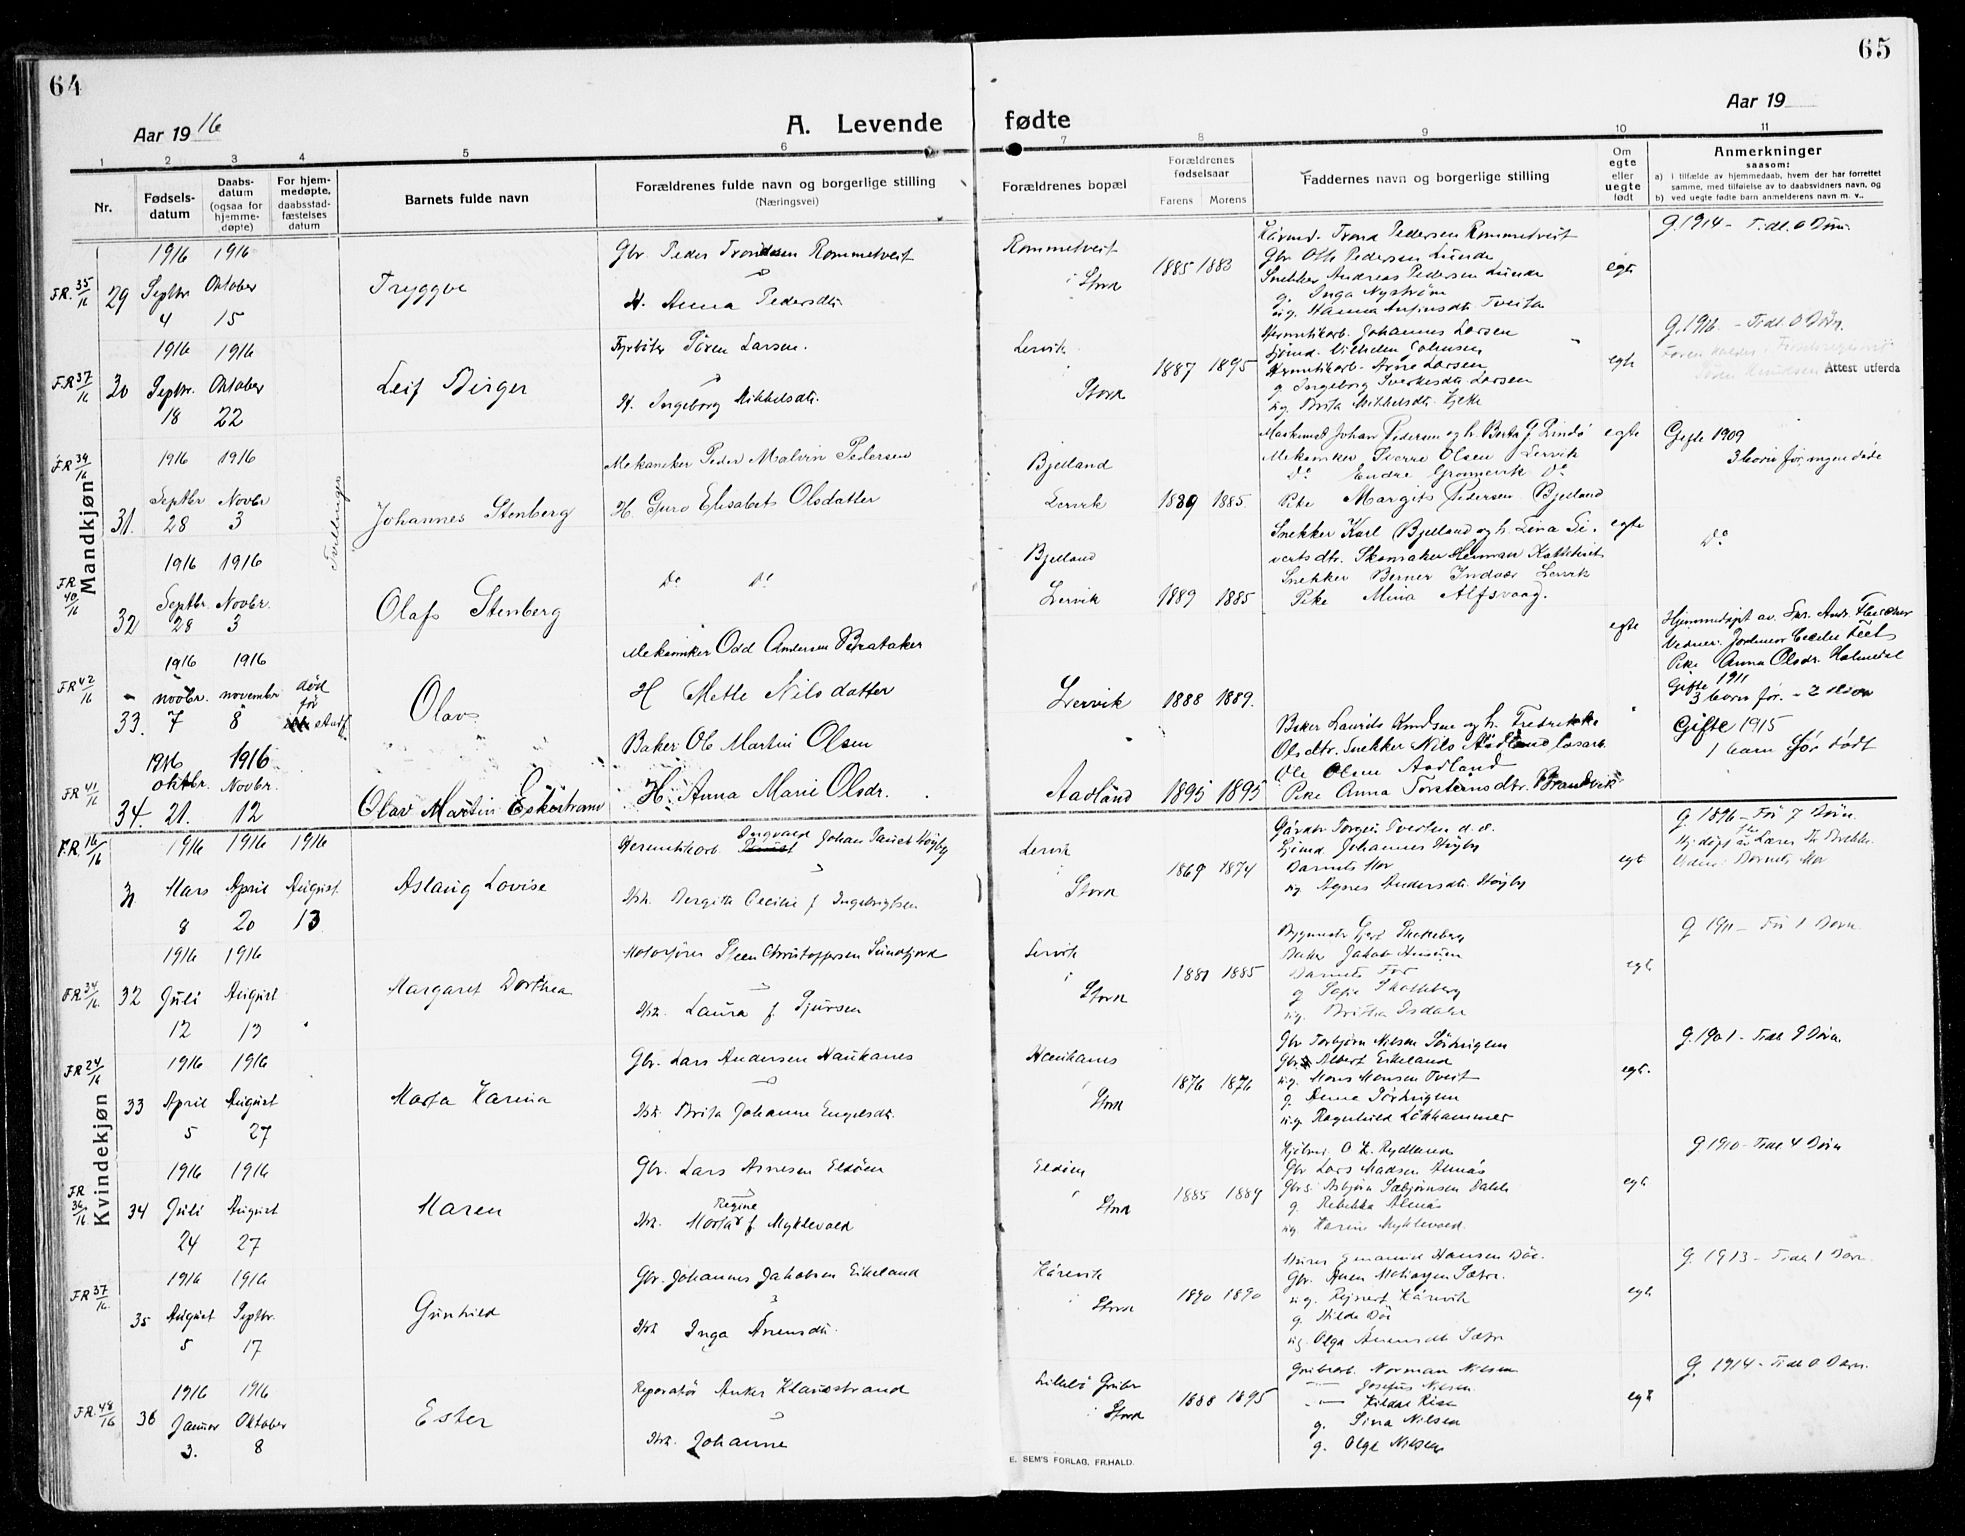 64
65
Aar 1916
A. Levende fødte
Aar 19
1 2 3 4 5 6 7 8 9 10 11
Nr.
Fødselsdatum
Daabsdatum (ogsaa for hjemmedøpte)
For hjemmedøpte, daabsstadfæstelses datum
Barnets fulde navn
Forældrenes fulde navn og borgerlige stilling
(Næringsvei)
Forældrenes bopæl
Forældrenes fødselsaar
Farens Morens
Faddernes navn og borgerlige stilling
Om egte eller uegte født
Anmerkninger
saasom:
a) i tilfælde av hjemmedaab, hvem der har forrettet samme, med tilføielse av to daabsvidners navn, og
b) ved uegte fødte barn anmelderens navn m. v..
Mandkjøn
FR. 35/16 29
1916 Septbr. 4
1916 Oktober 15
Tryggve
Gbr. Peder Trondsen Rommetveit
H. Anna Pedersdtr.
Rommetveit i Stord
1885 1883
Kårmd. Trond Pedersen Rommetveit
Gbr. Otto Pedersen Lunde
Snekker Andreas Pedersen Lunde
g. Inga Nystrøm
ug. Hanna Anfinsdtr. Tveita
egte
g. 1914 - Tidl. 0 Børn.
FR 37/16 30
1916 Septbr. 18
1916 Oktober 22
Leif Birger
Fyrbøter Søren Larsen.
H. Ingeborg Mikkelsdtr.
Lervik i Stord
1887 1895
Hermetikarb. Johannes Larsen
Hermetikarb. Arne Larsen
g. Ingeborg Sverkesdtr. Larsen
ug. Brita Mikkelsdtr.
egte
g. 1916. - Tidl. 0 Børn.
Attest utferda
FR 39/16 31.
1916 Septbr 28
1916 Novbr 3
Tvillinger
Johannes Stenberg
Mekaniker Peder Malvin Pedersen
H. Guro Elisabet Olsdatter
Bjelland Lervik
1889 1885.
Maskinist Johan Pedersen og h. Berta G. Lindø
Mekaniker Sverre Olsen Lervik
Do Endre Grønnevik Do
Pike Margit Pedersen Bjelland
egte
Gifte 1909
3 born før, ingen døde
FR 40/16 32
1916 Septbr. 28
1916 Novbr. 3
Olaf Stenberg
Do Do
Bjelland Lervik
1889 1885
Snekker Karl Bjelland og h. Lina Sivertsdtr. Skomaker Herman Kattetveit
Snekker Berner Indvær Lervik
Pike Mina Alfsvaag.
egte
Do
FR 42/16 33.
1916 novbr. 7
1916 november 8
død før Stadf.
Olav
Mekaniker Odd Andersen Brataker
H Mette Nilsdatter
Lervik
1888 1889.
egte
Hjemmedøpt av Spr. Andr. Fleischer
Vidner: Jordmor Cecilie Leet
Pike Anna Olsdr. Halmedal
Gifte 1911
3 born før. - 2 i live
FR 41/16 34.
1916 oktbr. 21.
1916 Novbr. 12
Olav Martin Eskestrand
Baker Ole Martin Olsen
H. Anna Marie Olsdr.
Aadland
1895 1895
Baker Laurits Knudsen og h. Fredrikke Olsdtr. Snekker Nils Aadland Løsarb.
Ole Olsen Aadland
Pike Anna Torsteinsdtr. Brandvik
Gifte 1915
1 barn før født
Kvindekjøn
FR. 16/16 31
1916 Mars 8
1916 April 20
1916 August 13
Aslaug Lovise
Hermetikarb. Ingvald Johan Parelt Høyby
Hst. Bergitte Cecilie f. Ingebrigtsen
Lervik i Stord
1869 1874
Gårdbr. Torgeir Tveiten d.e.
Sjømd. Johannes Høyby
Barnets Mor
ug. Agnes Andersdtr. Høyby
egte
g. 1896 - Før 7 Børn.
Hj. døpt av Lærer Th Brekke
Vidne: Barnets Mor
FR. 34/16 32
1916 Juli 12
1916 August 13
Margaret Dorthea
Motorfører Steen Christoffersen Sundfjord
Hst. Laura f. Sjursen
Lervik i Stord
1881 1885
Bygmester Gert Skotteberg
Baker Jakob Hansen
Barnets Far
g. Sofie Skotteberg
ug. Britha Isdahl
egte
g. 1911 - Før 1 Barn.
FR 24/16 33
1916 April 5
1916 August 27
Marta Karina
Gbr. Lars Andersen Haukanes
Hst. Brita Johanne Engelsdtr.
Haukanes i Stord
1876 1876
Gbr Torbjørn Nilsen Sørhuglen
Gbr. Albert Eikeland
ug. Mons Monsen Tveit
g. Anna Sørhuglen
ug. Ragnhild Løkhammer
egte.
g. 1901 - Tidl. 9 Børn.
FR 36/16 34
1916 Juli 24
1916 August 27
Maren
Gbr. Lars Arnesen Eldøen
Hst. Marta Regine f. Myklevold
Eldøen i Stord
1885 1889
Kjøbm. O. L. Rydland
Gbr Lars Madsen Almås
Gbrs. Asbjørn Sæbjørnsen Dahle
g. Rebekka Almås
ug. Karina Myklevold.
egte
g. 1910 - Tidl. 4 Børn
FR 37/16 35
1916 August 5
1916 Septbr. 17
Gunhild
Gbr. Johannes Jakobsen Eikeland
Hst Inga Årensdtr.
Kårevik i Stord
1890 1890
Murer Emanuel Hansen Bøe.
Gbr. Åren Mathiasen Sætre
ug. Rejnert Kårevik
g. Hilda Bøe
ug. Olga Årensdtr Sætre
egte
g. 1913 - Tidl. 1 Barn.
FR. 48/16 36
1916 Januar 3.
1916 Oktober 8
Ester
Reparatør Anker Klausstrand
Hst. Johanne
Litlabø Gruber i Stord
1888 1895
Grubearb. Norman Nilsen
-"- Josefus Nilsen
-"- Hildar Risa
g. Sina Nilsen
g. Olga Nilsen
egte
g. 1914 - Tidl. 0 Børn.
E. SEM'S FORLAG, FR.HALD.